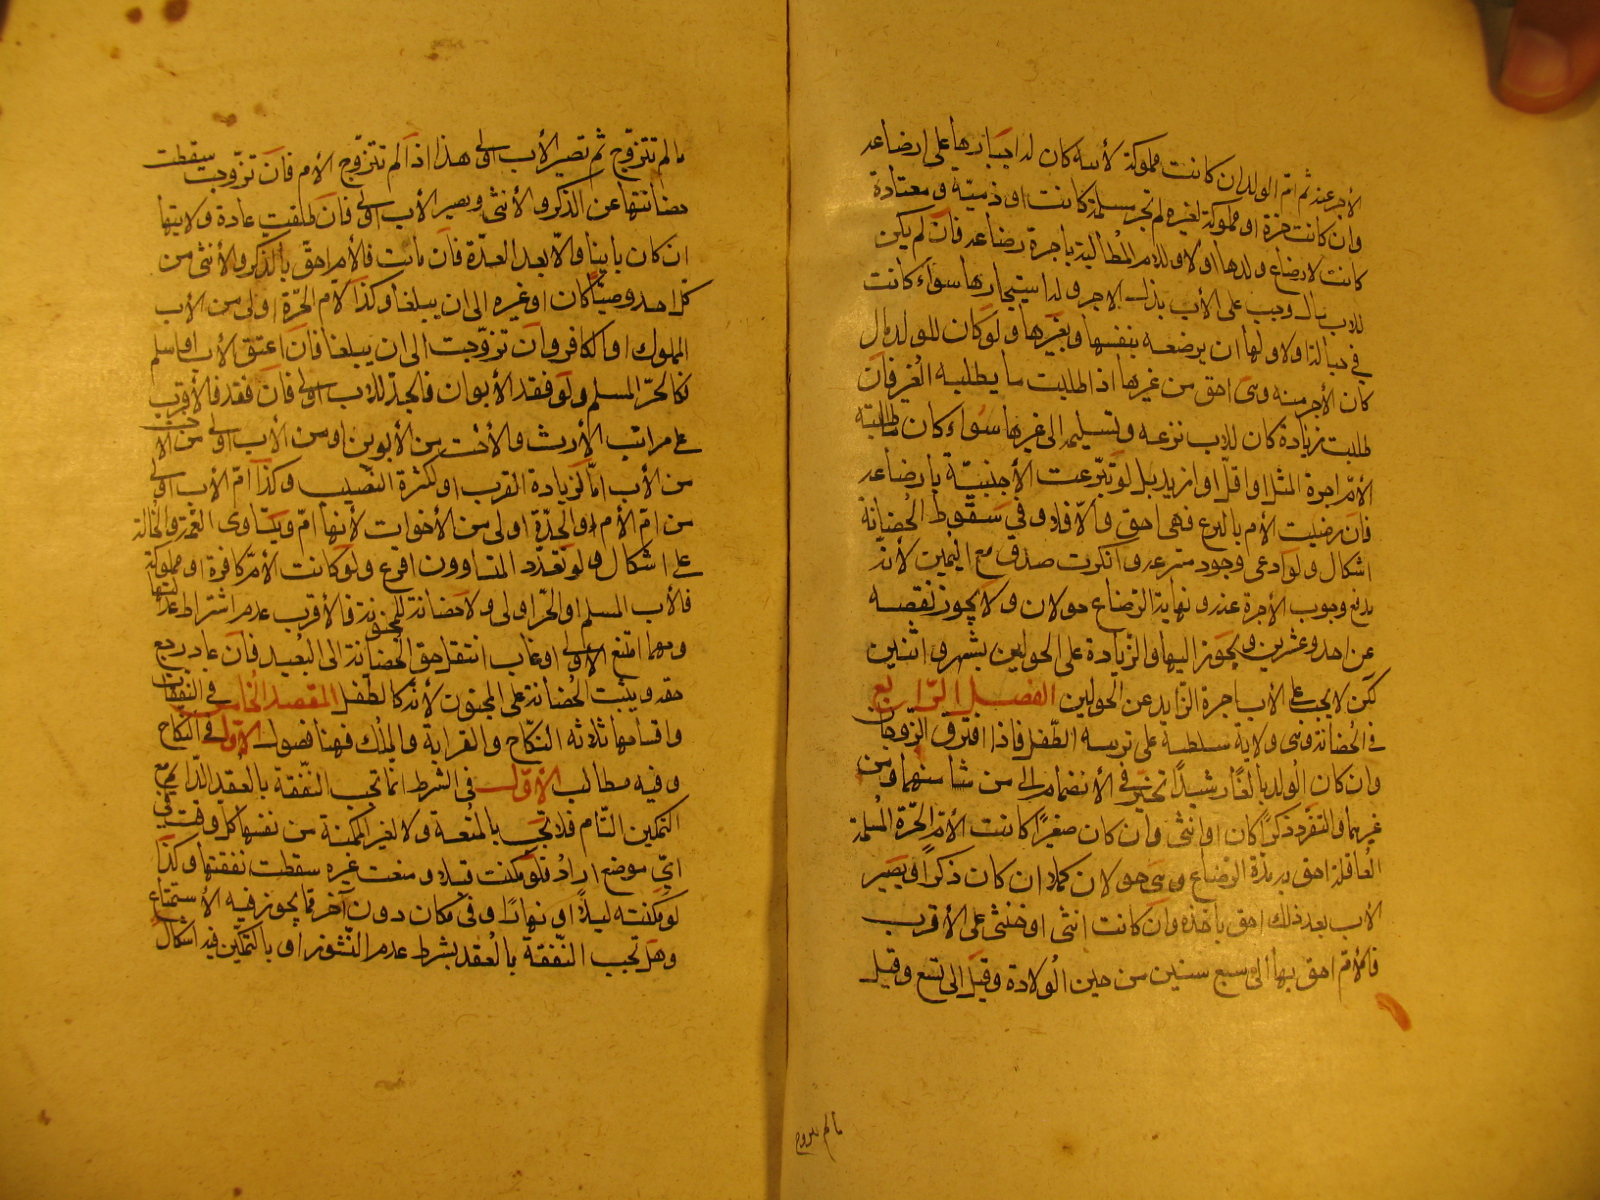 الأجر عند ثم ام الولد ان كانت مملوكة لأبيه كان له اجبارها على ارضاعه
وان كانت حرة او مملوكة لغيره لم تجبر مسلمة كانت او ذمية ومعتادة
كانت لارضاع ولدها او لا وللام المطالبة باجرة رضاعه فان لم يكن
للاب مال وجب على الأب بذل الاجر وله استيجارها سواء كانت
في حباله او لا ولها ان يرضعه بنفسها وبغيرها ولو كان للولد مال
كان الأجر منه وهى احق من غيرها اذا طلبت ما يطلبه الغير فان
طلبت زيادة كان للاب نزعه وتسليمه الى غيرها سواء كان ما طلبته
الأم اجرة المثل او اقل او ازيد بل لو تبرعت الأجنبية بارضاعه
فان رضيت الأم بالتبرع فهى احق والا فلا وفي سقوط الحضانة
اشكال ولو ادعى وجود متبرعة وانكرت صدق مع اليمين لأنه
يدفع وجوب الأجرة عنه ونهاية الرضاع حولان ولا يجوز نقصه
عن احد وعشرين ويجوز اليها والزيادة على الحولين بشهر واثنين
لكن لا يجب على الأب اجرة الزايد عن الحولين الفصل الرابع
في الحضانة وهى ولاية وسلطنة على تربية الطفل فاذا افترق الزوجان
وان كان الولد بالغا رشيدا تخير في الأنضمام الى من شاء منهما ومن
غيرهما والتفرد ذكرا كان او انثى وان كان صغيرا كانت الأم الحرة المسلمة
العاقلة احق به مدة الرضاع وهى حولان كملا ان كان ذكرا ويصير
الأب بعد ذلك احق باخذه وان كانت انثى او خنثى على الأقرب
فالأم احق بها الى سبع سنين من حين الولادة وقيل الى تسع وقيل
ما لم تتزوج
ما لم تتزوج ثم تصير الأب اولى هذا اذا لم تتزوج الأم فان تزوجت سقطت
حضانتها عن الذكر والأنثى ويصير الأب اولى فان طلقت عادة ولايتها
ان كان باينا والا بعد العدة فان مات فالأم احق بالذكر والأنثى من
كل احد وصيا كان او غيره الى ان يبلغا وكذا الأم الحرة اولى من الأب
المملوك او الكافر وان تزوجت الى ان يبلغا فان اعتق الأب او اسلم
فكالحر المسلم ولو فقد الأبوان فالجد للاب اولى فان فقد فالأقرب
على مراتب الأرث والأخت من الأبوين او من الأب اولى من الأخت
من الأب اما لزيادة القرب او لكثرة النصيب وكذا ام الأب اولى
من ام الأم والجدة اولى من الأخوات لأنها ام ويتساوى العمة والخالة
على اشكال ولو تعدد المتساوون اقرع ولو كانت الأم كافرة او مملوكة
فالأب المسلم او الحر اولى ولا حضانة للمجنونة فالأقرب عدم اشتراط عدالتها
ومهما امتنع الأولى او غاب انتقل حق الحضانة الى البعيد فان عاد رجع
حقه ويثبت الحضانة على المجنون لأنه كالطفل المقصد الخامس في النفقات
واقسامها ثلاثة النكاح والقرابة والملك فهنا فصول الأول في النكاح
وفيه مطالب الأول في الشرط انما تجب النفقة بالعقد الدائم مع
التمكين التام فلا تجب بالمتعة ولا لغير الممكنة من نفسها كل وقت في
اي موضع اراد فلو مكنت قبلا ومنعت غيره سقطت نفقتها وكذا
لو مكنته ليلا او نهارا وفي مكان دون آخر مما يجوز فيه الأستمتاع
وهل تجب النفقة بالعقد بشرط عدم النشوز او بالتمكين فيه اشكال